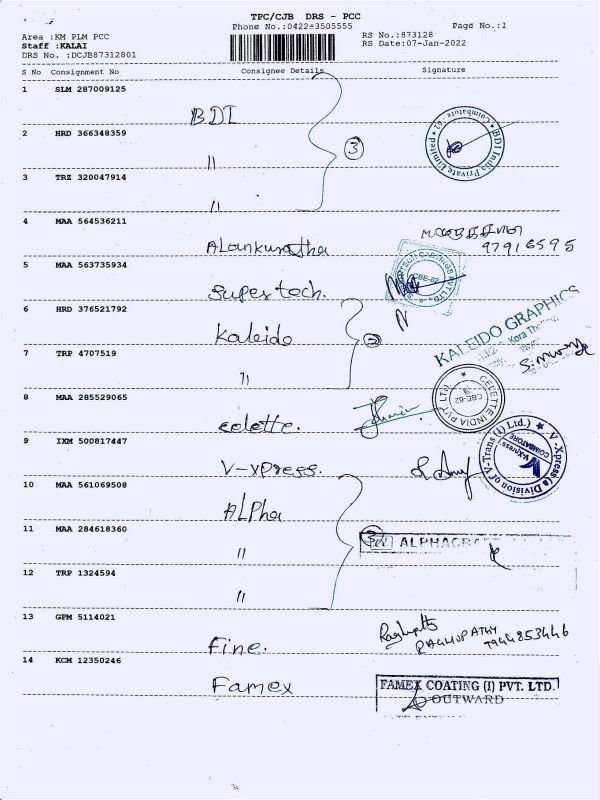 TPC/CJB DRS - PCC
Phone No.:0422-3505555
Page No.:1
Area :KM PLM PCC
RS No.:873128
Staff :KALAI
RS Date:07-Jan-2022
DRS No. :DCJB87312801
S No Consignment No Consignee Details Signature
1 SLM 287009125
BDI
BDI India Private Limited * Coimbatore - 62 *
2 HRD 366348359
"
3
3 TRZ 320047914
"
4 MAA 564536211
Alankuratha
97916595
5 MAA 563735934
Supertech.
CBE-62
6 HRD 376521792
Kaleido
2
KALEIDO GRAPHICS
7 TRP 4707519
"
8 MAA 285529065
celette.
CELETTE INDIA PVT. LTD.
CBE-62
9 IXM 500817447
V-xpress.
V-Xpress (a Division of V-Trans (I) Ltd.)
V-Xpress
COIMBATORE
10 MAA 561069508
Alpha
11 MAA 284618360
"
12 TRP 1324594
"
13 GPM 5114021
Fine.
RAGHUPATHY
7944853446
14 KCM 12350246
Famex
FAMEX COATING (I) PVT. LTD.
OUTWARD